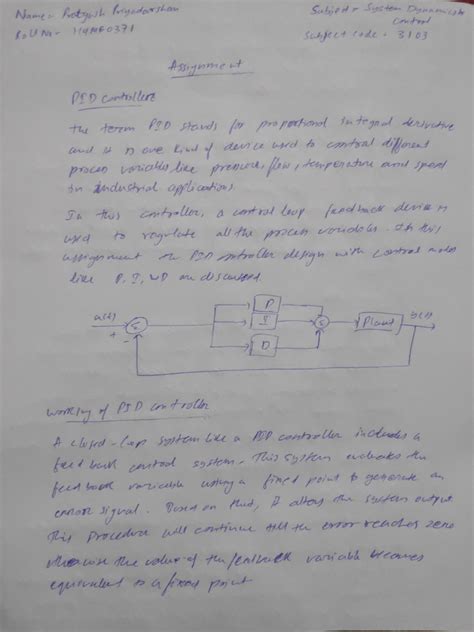 Name:- Pratyush Priyadarshan
Subject:- System Dynamics &
Control
Roll No:-
Subject code:- 3103
Assignment
PID Controller
The term PID stands for proportional integral derivative
and it is one kind of device used to control different
process variables like pressure, flow, temperature and speed
in industrial applications.
In this controller, a control loop feedback device is
used to regulate all the process variables. In this
assignment on PID controller design with control modes
like P, I, &D are discussed.
P
a(t)
I
Plant
b(t)
+
-
D
Working of PID controller
A closed-loop system like a PID controller includes a
feed back control system. This system evaluates the
feed back variable using a fixed point to generate an
error signal. Based on that, it alters the system output
This procedure will continue till the error reaches zero
otherwise the value of the feedback variable becomes
equivalent to a fixed point